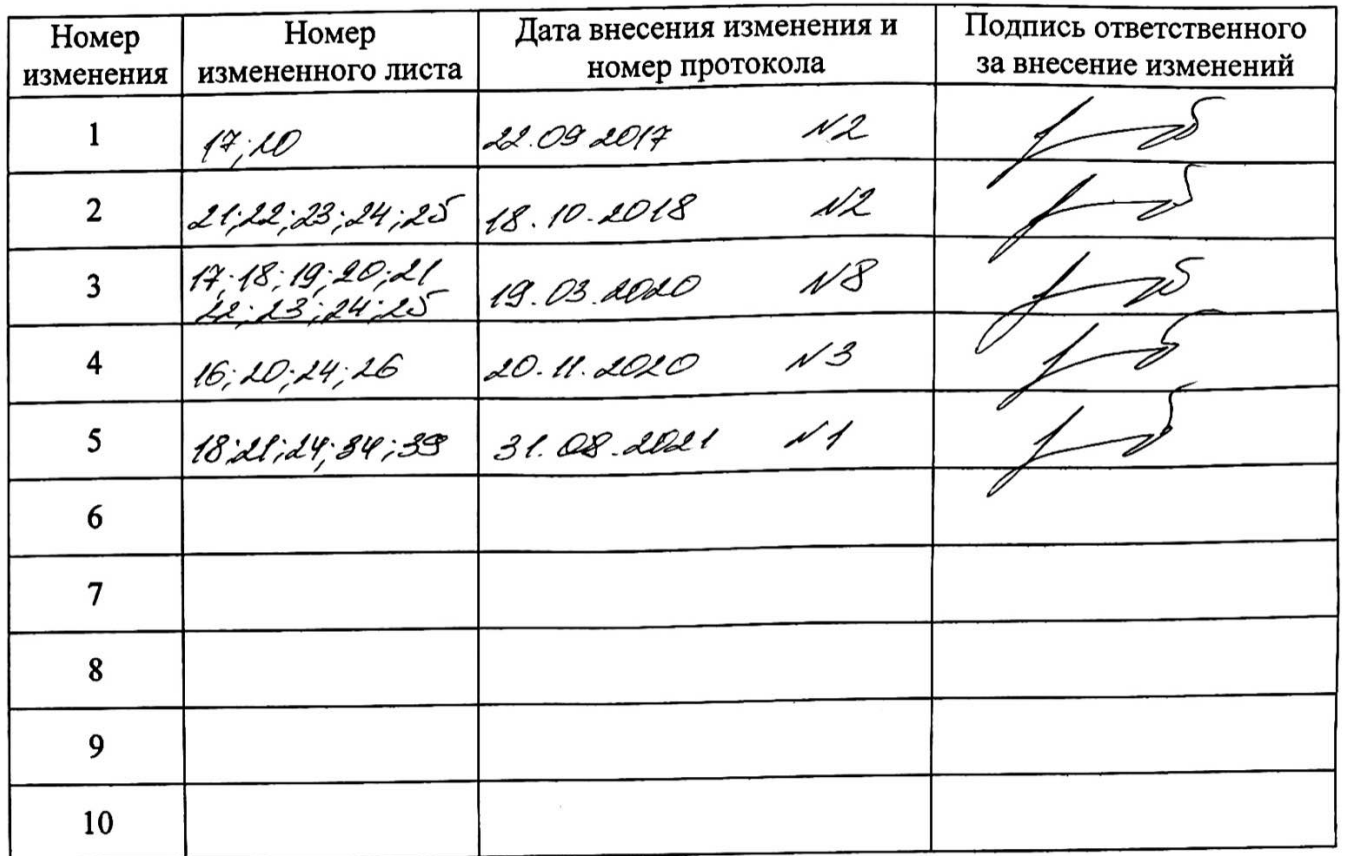 Номер изменения Номер измененного листа Дата внесения изменения и номер протокола Подпись ответственного за внесение изменений
1 17; 20 22.09.2017 №2
2 21; 22; 23; 24; 25 18.10.2018 №2
3 17; 18; 19; 20; 21
22; 23; 24; 25 19.03.2020 №8
4 16; 20; 24; 26 20.11.2020 №3
5 18; 21; 24; 34; 39 31.08.2021 №1
6
7
8
9
10